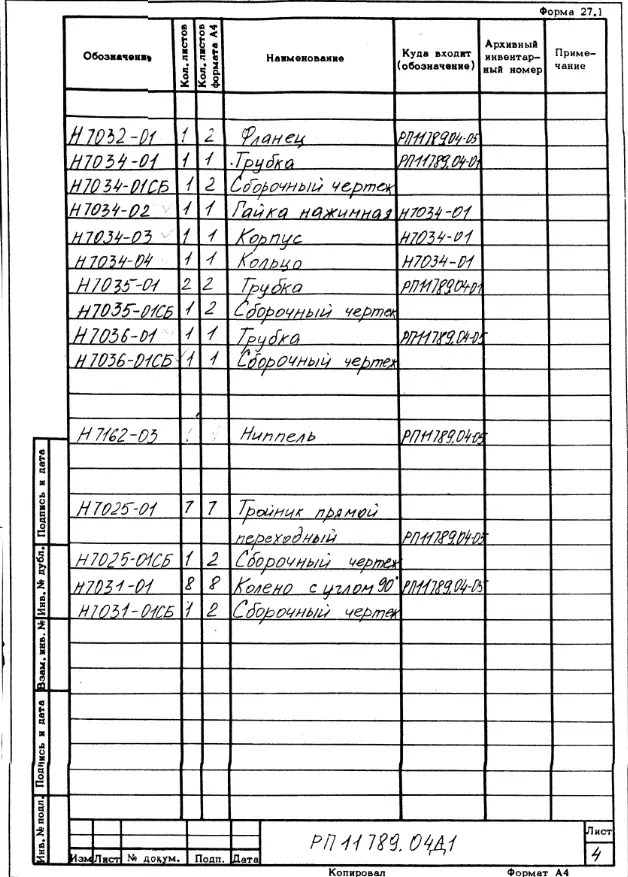 Форма 27.1
Обозначение Кол. листов Кол. листов формата А4 Наименование Куда входит (обозначение) Архивный инвентар- ный номер Приме- чание
Н7032-01 1 2 Фланец РП11789.04-05
Н7034-01 1 1 Трубка РП11789.04-01
Н7034-01СБ 1 2 Сборочный чертеж
Н7034-02 1 1 Гайка нажимная Н7034-01
Н7034-03 1 1 Корпус Н7034-01
Н7034-04 1 1 Кольцо Н7034-01
Н7035-01 2 2 Трубка РП11789.04-01
Н7035-01СБ 1 2 Сборочный чертеж
Н7036-01 1 1 Трубка РП11789.04-05
Н7036-01СБ 1 1 Сборочный чертеж
Н7162-03 Ниппель РП11789.04-05
Н7025-01 7 7 Тройник прямой
переходный РП11789.04-05
Н7025-01СБ 1 2 Сборочный чертеж
Н7031-01 8 8 Колено с углом 90° РП11789.04-05
Н7031-01СБ 1 2 Сборочный чертеж
Подпись и дата
Инв. № дубл.
Взам. инв. №
Подпись и дата
Инв. № подл.
РП11789.04Д1
Лист
4
Изм Лист № докум. Подп. Дата
Копировал Формат А4